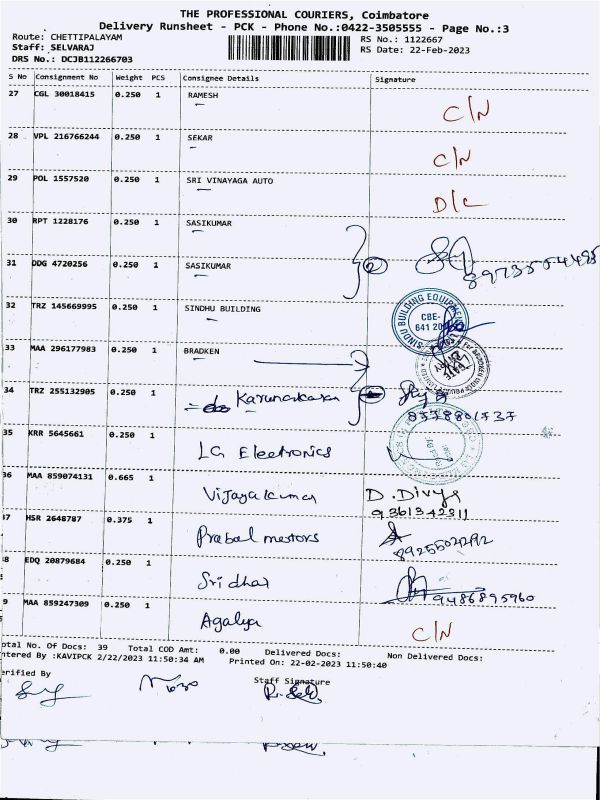 THE PROFESSIONAL COURIERS, Coimbatore
Delivery Runsheet - PCK - Phone No.:0422-3505555 - Page No.:3
Route: CHETTIPALAYAM RS No.: 1122667
Staff: SELVARAJ RS Date: 22-Feb-2023
DRS No.: DCJB112266703
S No Consignment No Weight PCS Consignee Details Signature
27 CGL 30018415 0.250 1 RAMESH C/N
28 VPL 216766244 0.250 1 SEKAR C/N
29 POL 1557520 0.250 1 SRI VINAYAGA AUTO D/L
30 RPT 1228176 0.250 1 SASIKUMAR
31 DDG 4720256 0.250 1 SASIKUMAR 2
32 TRZ 145669995 0.250 1 SINDHU BUILDING
SINDU BUILDING EQUIPMENT
CBE-
641 20
33 MAA 296177983 0.250 1 BRADKEN
34 TRZ 255132905 0.250 1 Karunakaran
35 KRR 5645661 0.250 1 LG Electronics
36 MAA 859074131 0.665 1 Vijaya Kumar D. Divya
9361342811
37 HSR 2648787 0.375 1 Prabal mestors
38 EDQ 20879684 0.250 1 Sridhar 9486895960
39 MAA 859247309 0.250 1 Agalya C/N
otal No. Of Docs: 39 Total COD Amt: 0.00 Delivered Docs: Non Delivered Docs:
ntered By :KAVIPCK 2/22/2023 11:50:34 AM Printed On: 22-02-2023 11:50:40
erified By Staff Signature